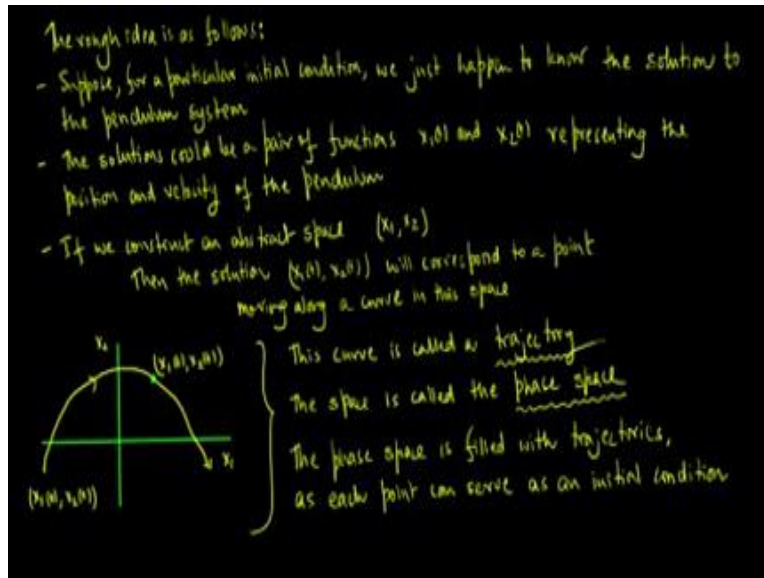 The rough idea is as follows:
- Suppose, for a particular initial condition, we just happen to know the solution to
the pendulum system
- The solutions could be a pair of functions x₁(t) and x₂(t) representing the
position and velocity of the pendulum
- If we construct an abstract space (x₁, x₂)
Then the solution (x₁(t), x₂(t)) will correspond to a point
moving along a curve in this space
x₂
(x₁(t), x₂(t))
x₁
(x₁(0), x₂(0))
This curve is called a trajectory
The space is called the phase space
The phase space is filled with trajectories,
as each point can serve as an initial condition